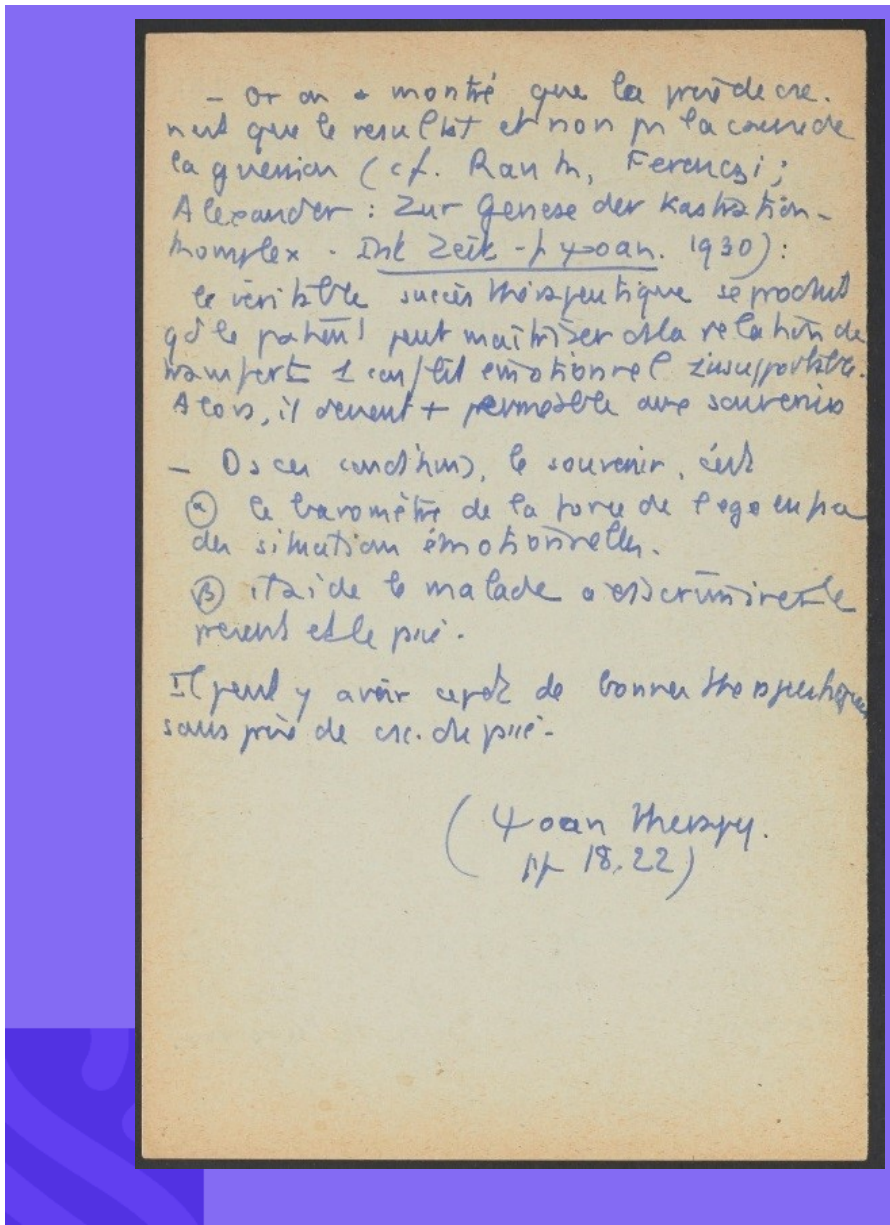 - Or on a montré que la prise de csc.
n'est que le resultat et non pr la cause de
la guérison (cf. Rank, Ferenczi ;
Alexander : Zur Genese der Kastration-
komplex - Int Zeit - f ψoan. 1930) :
le véritable succès thérapeutique se produit
qd le patient peut maîtriser ds la relation de
transfert 1 conflit émotionnel insupportable.
Alors, il devient + perméable aux souvenirs
- Ds ces conditions, le souvenir, c'est
α le baromètre de la force de l'ego en
des situations émotionnelles.
β il aide le malade a discriminer le
présent et le passé.
Il peut y avoir de bonnes thérapeutiques
sans prise de csc. du passé -
(ψoan therapy.
pp 18.22)